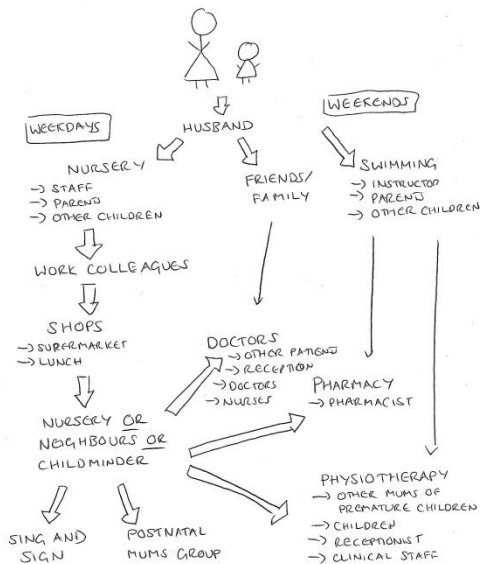 WEEKDAYS
WEEKENDS
HUSBAND
NURSERY
→ STAFF
→ PARENTS
→ OTHER CHILDREN
FRIENDS/
FAMILY
SWIMMING
→ INSTRUCTOR
→ PARENTS
→ OTHER CHILDREN
WORK COLLEAGUES
SHOPS
→ SUPERMARKET
→ LUNCH
DOCTORS
→ OTHER PATIENTS
→ RECEPTION
→ DOCTORS
→ NURSES
PHARMACY
→ PHARMACIST
NURSERY OR
NEIGHBOURS OR
CHILDMINDER
PHYSIOTHERAPY
→ OTHER MUMS OF
PREMATURE CHILDREN
→ CHILDREN
→ RECEPTIONIST
→ CLINICAL STAFF
SING AND
SIGN
POSTNATAL
MUMS GROUP